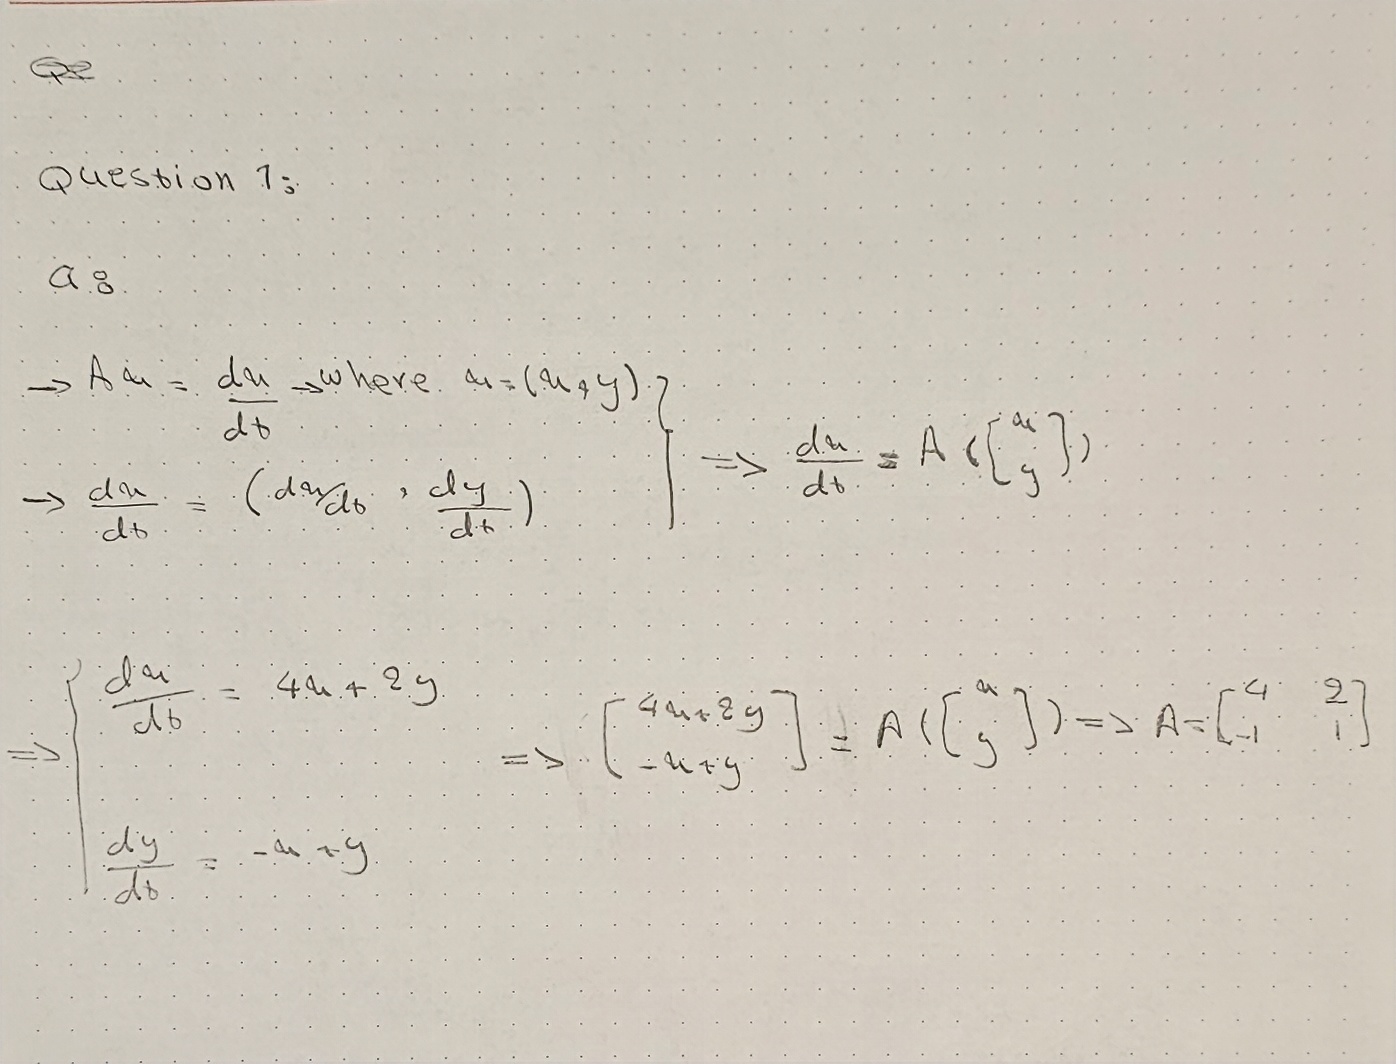 Question 1:
a:
→ Au = du/dt → where u = (x, y)
→ du/dt = (dx/dt , dy/dt)
=> du/dt = A ([x y])
=> { dx/dt = 4x + 2y
dy/dt = -x + y
=> [4x + 2y -x + y] = A ([x y]) => A = [4 2 -1 1]